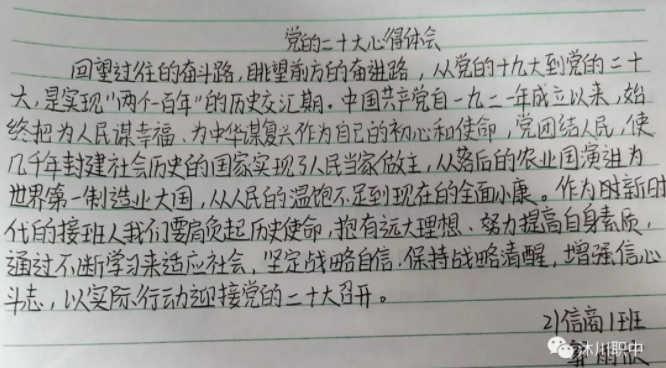 党的二十大心得体会
回望过往的奋斗路,眺望前方的奋进路,从党的十九大到党的二十
大,是实现"两个一百年"的历史交汇期。中国共产党自一九二一年成立以来,始
终把为人民谋幸福、为中华谋复兴作为自己的初心和使命,党团结人民,使
几千年封建社会历史的国家实现了人民当家做主,从落后的农业国演进为
世界第一制造业大国,从人民的温饱不足到现在的全面小康。作为时新时
代的接班人我们要肩负起历史使命,抱有远大理想、努力提高自身素质,
通过不断学习来适应社会、坚定战略自信、保持战略清醒,增强信心
斗志,以实际行动迎接党的二十大召开。
21信商1班
沐川职中
郭雨欣